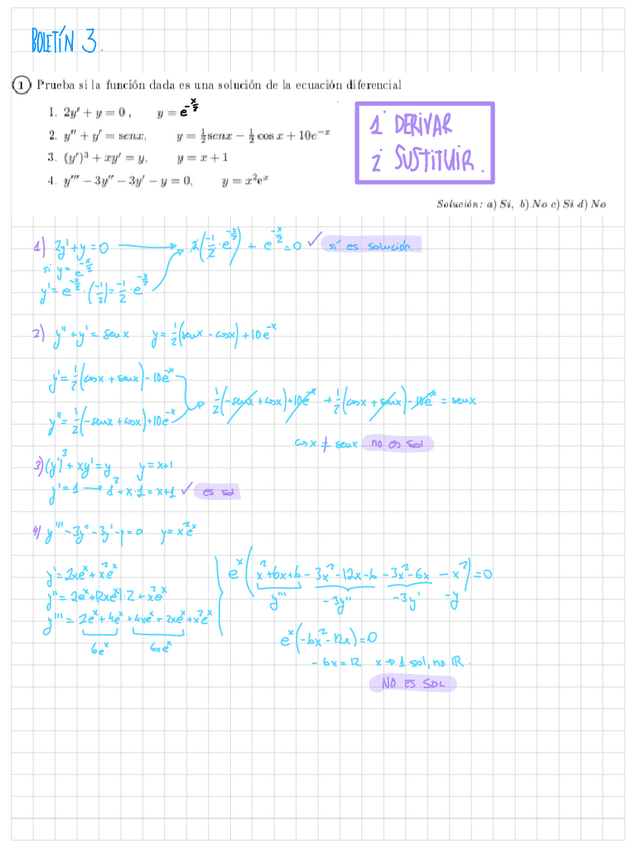 BOLETÍN 3.
① Prueba si la función dada es una solución de la ecuación diferencial
1. 2y' + y = 0, y = e^(-x/2)
2. y'' + y' = senx, y = ½senx − ½cos x + 10e^(−x)
3. (y')³ + xy' = y, y = x + 1
4. y''' − 3y'' − 3y' − y = 0, y = x²e^x
1º DERIVAR
2º SUSTITUIR.
Solución: a) Si, b) No c) Si d) No
1) 2y'+y=0 → 2(-1/2 · e^(-x/2)) + e^(-x/2) = 0 ✓ sí es solución.
si y = e^(-x/2)
y' = e^(-x/2) · (-1/2) = -1/2 · e^(-x/2)
2) y''+y' = senx y = 1/2(senx - cosx) + 10e^(-x)
y' = 1/2(cosx + senx) - 10e^(-x)
y'' = 1/2(-senx + cosx) + 10e^(-x) → 1/2(-senx + cosx) + 10e^(-x) + 1/2(cosx + senx) - 10e^(-x) = senx
cosx ≠ senx no es sol
3) (y')³ + xy' = y y = x+1
y' = 1 → 1³ + x·1 = x+1 ✓ es sol
4) y''' - 3y'' - 3y' - y = 0 y = x²e^x
y' = 2xe^x + x²e^x
y'' = 2e^x + (2xe^x)·2 + x²e^x
y''' = 2e^x + 4e^x + 4xe^x + 2xe^x + x²e^x
6e^x 6xe^x
e^x(x² + 6x + 6 - 3x² - 12x - 6 - 3x² - 6x - x²) = 0
y''' -3y'' -3y' -y
e^x(-6x² - 12x) = 0
- 6x = 12 x → 1 sol, no ℝ.
NO ES SOL